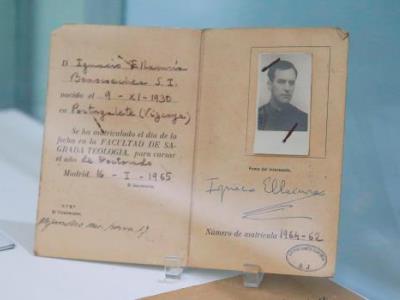 D. Ignacio Ellacuría
Beascoechea S. I.
nacido el 9 - XI - 1930
en Portugalete (Vizcaya)
Se ha matriculado el día de la
fecha en la FACULTAD DE SA-
GRADA TEOLOGIA, para cursar
el año de Doctorado
Madrid, 16 - I - 1965
El Secretario,
Vº Bº
Firma del interesado,
Ignacio Ellacuría
Número de matrícula 1964-62
S. J.